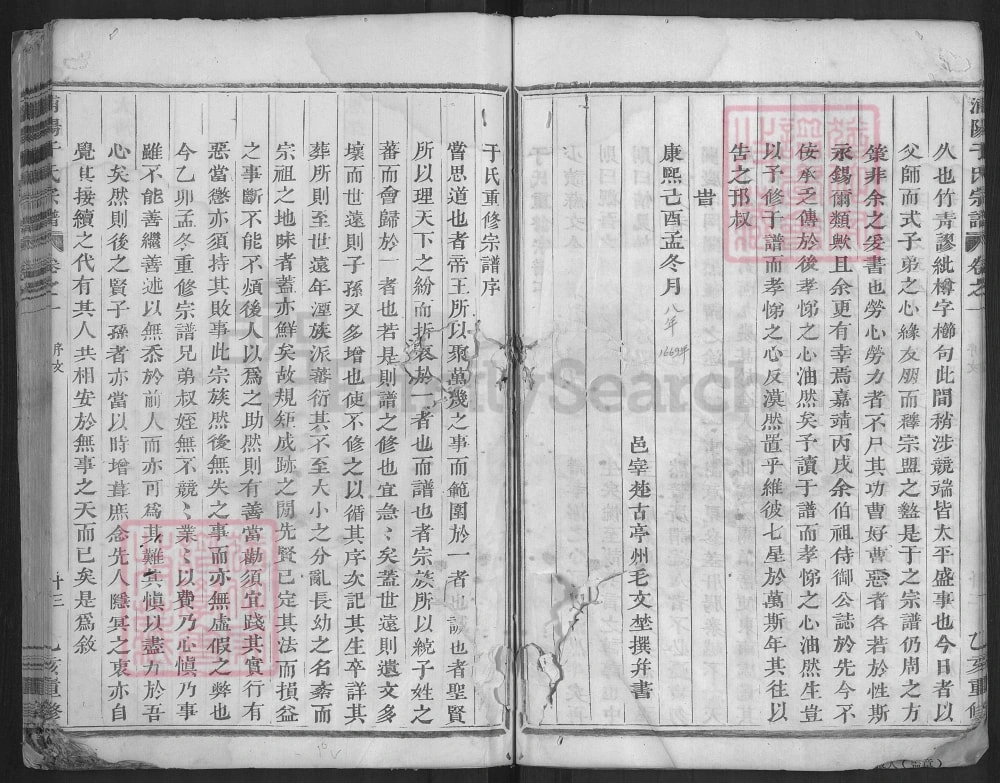 浦陽于氏宗譜 卷之一 序文 乙亥重修
久也竹青謬紕樽字櫛句此間稍涉競端皆太平盛事也今日者以
父師而式子弟之心緣友朋而釋宗盟之盭是于之宗譜仍周之方
策非余之爰書也勞心勞力者不尸其功曹好曹惡者各若於性斯
永錫爾類歟且余更有幸焉嘉靖丙戌余伯祖侍御公誌於先今不
佞承乏傳於後孝悌之心油然矣予讀于譜而孝悌之心油然生豈
以予修于譜而孝悌之心反漠然置乎維彼七星於萬斯年其往以
告之邘叔
旹
康熙己酉孟冬月 八年 1669年
邑宰楚古亭州毛文埜撰幷書
于氏重修宗譜序
嘗思道也者帝王所以聚萬幾之事而範圍於一者也
所以理天下之紛而折衷於一者也而譜也者宗族所以統子姓之
蕃而會歸於一者也若是則譜之修也宜急〻矣蓋世遠則遺文多
壞而世遠則子孫又多增也使不修之以循其序次記其生卒詳其
葬所則至世遠年湮族派蕃衍其不至大小之分亂長幼之名紊而
宗祖之地昧者蓋亦鮮矣故規矩成跡之閒先賢已定其法而損益
之事斷不能不須後人以爲之助然則有善當勸須宜踐其實行有
惡當懲亦須持其敗事此宗族然後無失之事而亦無虛假之弊也
今乙卯孟冬重修宗譜兄弟叔姪無不競〻業〻以費乃心愼乃事
雖不能善繼善述以無忝於前人而亦可爲其難其愼以盡力於吾
心矣然則後之賢子孫者亦當以時增葺庶念先人隱冥之衷亦自
覺其接續之代有其人共相安於無事之天而已矣是爲敘
浦陽于氏宗譜 卷之一 序文 十三 乙亥重修
FamilySearch